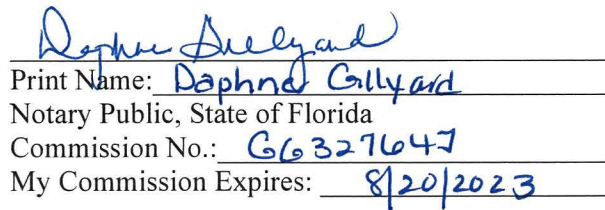 Daphne Gillyard
Print Name: Daphne Gillyard
Notary Public, State of Florida
Commission No.: GG327647
My Commission Expires: 8/20/2023